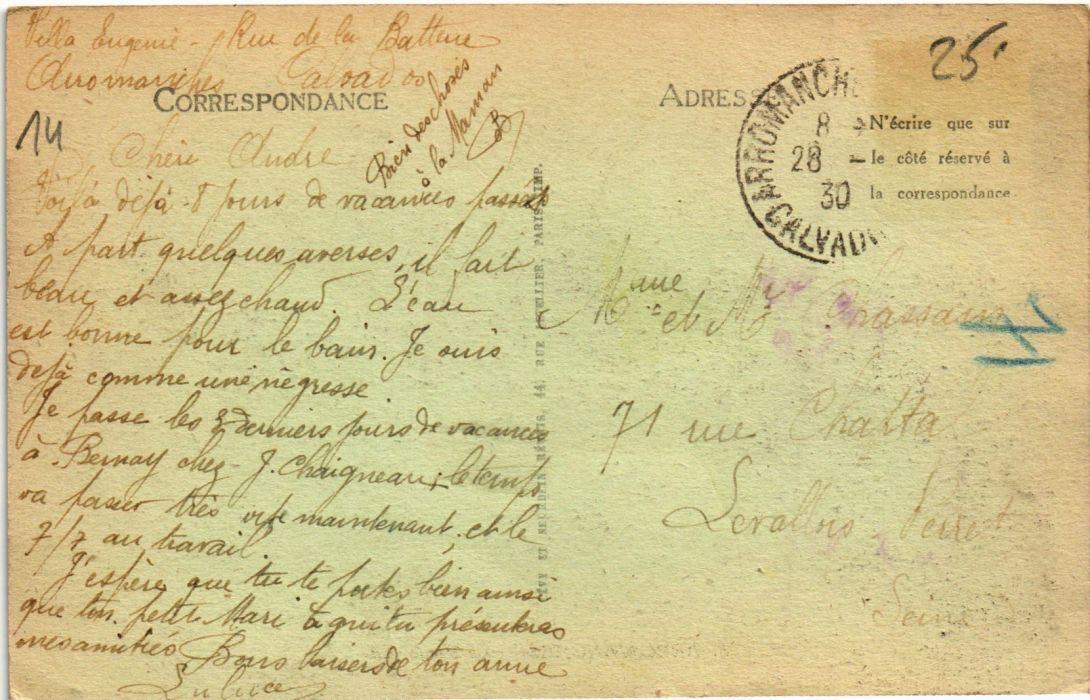 Villa Eugenie - Rue de la Batterie
Arromanches Calvados
CORRESPONDANCE
14
Bien des choses
à la Maman
Chère André
Voilà déjà 8 jours de vacances passés
A part quelques averses, il fait
beau et assez chaud. L'eau
est bonne pour le bain. Je suis
déjà comme une négresse
Je passe les 8 derniers jours de vacances
à Bernay chez J. Chaigneau, le temps
va passer très vite maintenant et le
7/7 au travail.
J'espère que tu te portes bien ainsi
que ton petit Mari à qui tu présenteras
mes amitiés Bons baisers de ton amie
LEVY ET NEURDEIN RÉUNIS, 44, RUE LETELLIER, PARIS IMP.
ADRESSE
25
ARROMANCHES
8
28
30
CALVADOS
N'écrire que sur
le côté réservé à
la correspondance
Mme et Mr Chassaing
71 rue Chatta
Levallois Perret
Seine